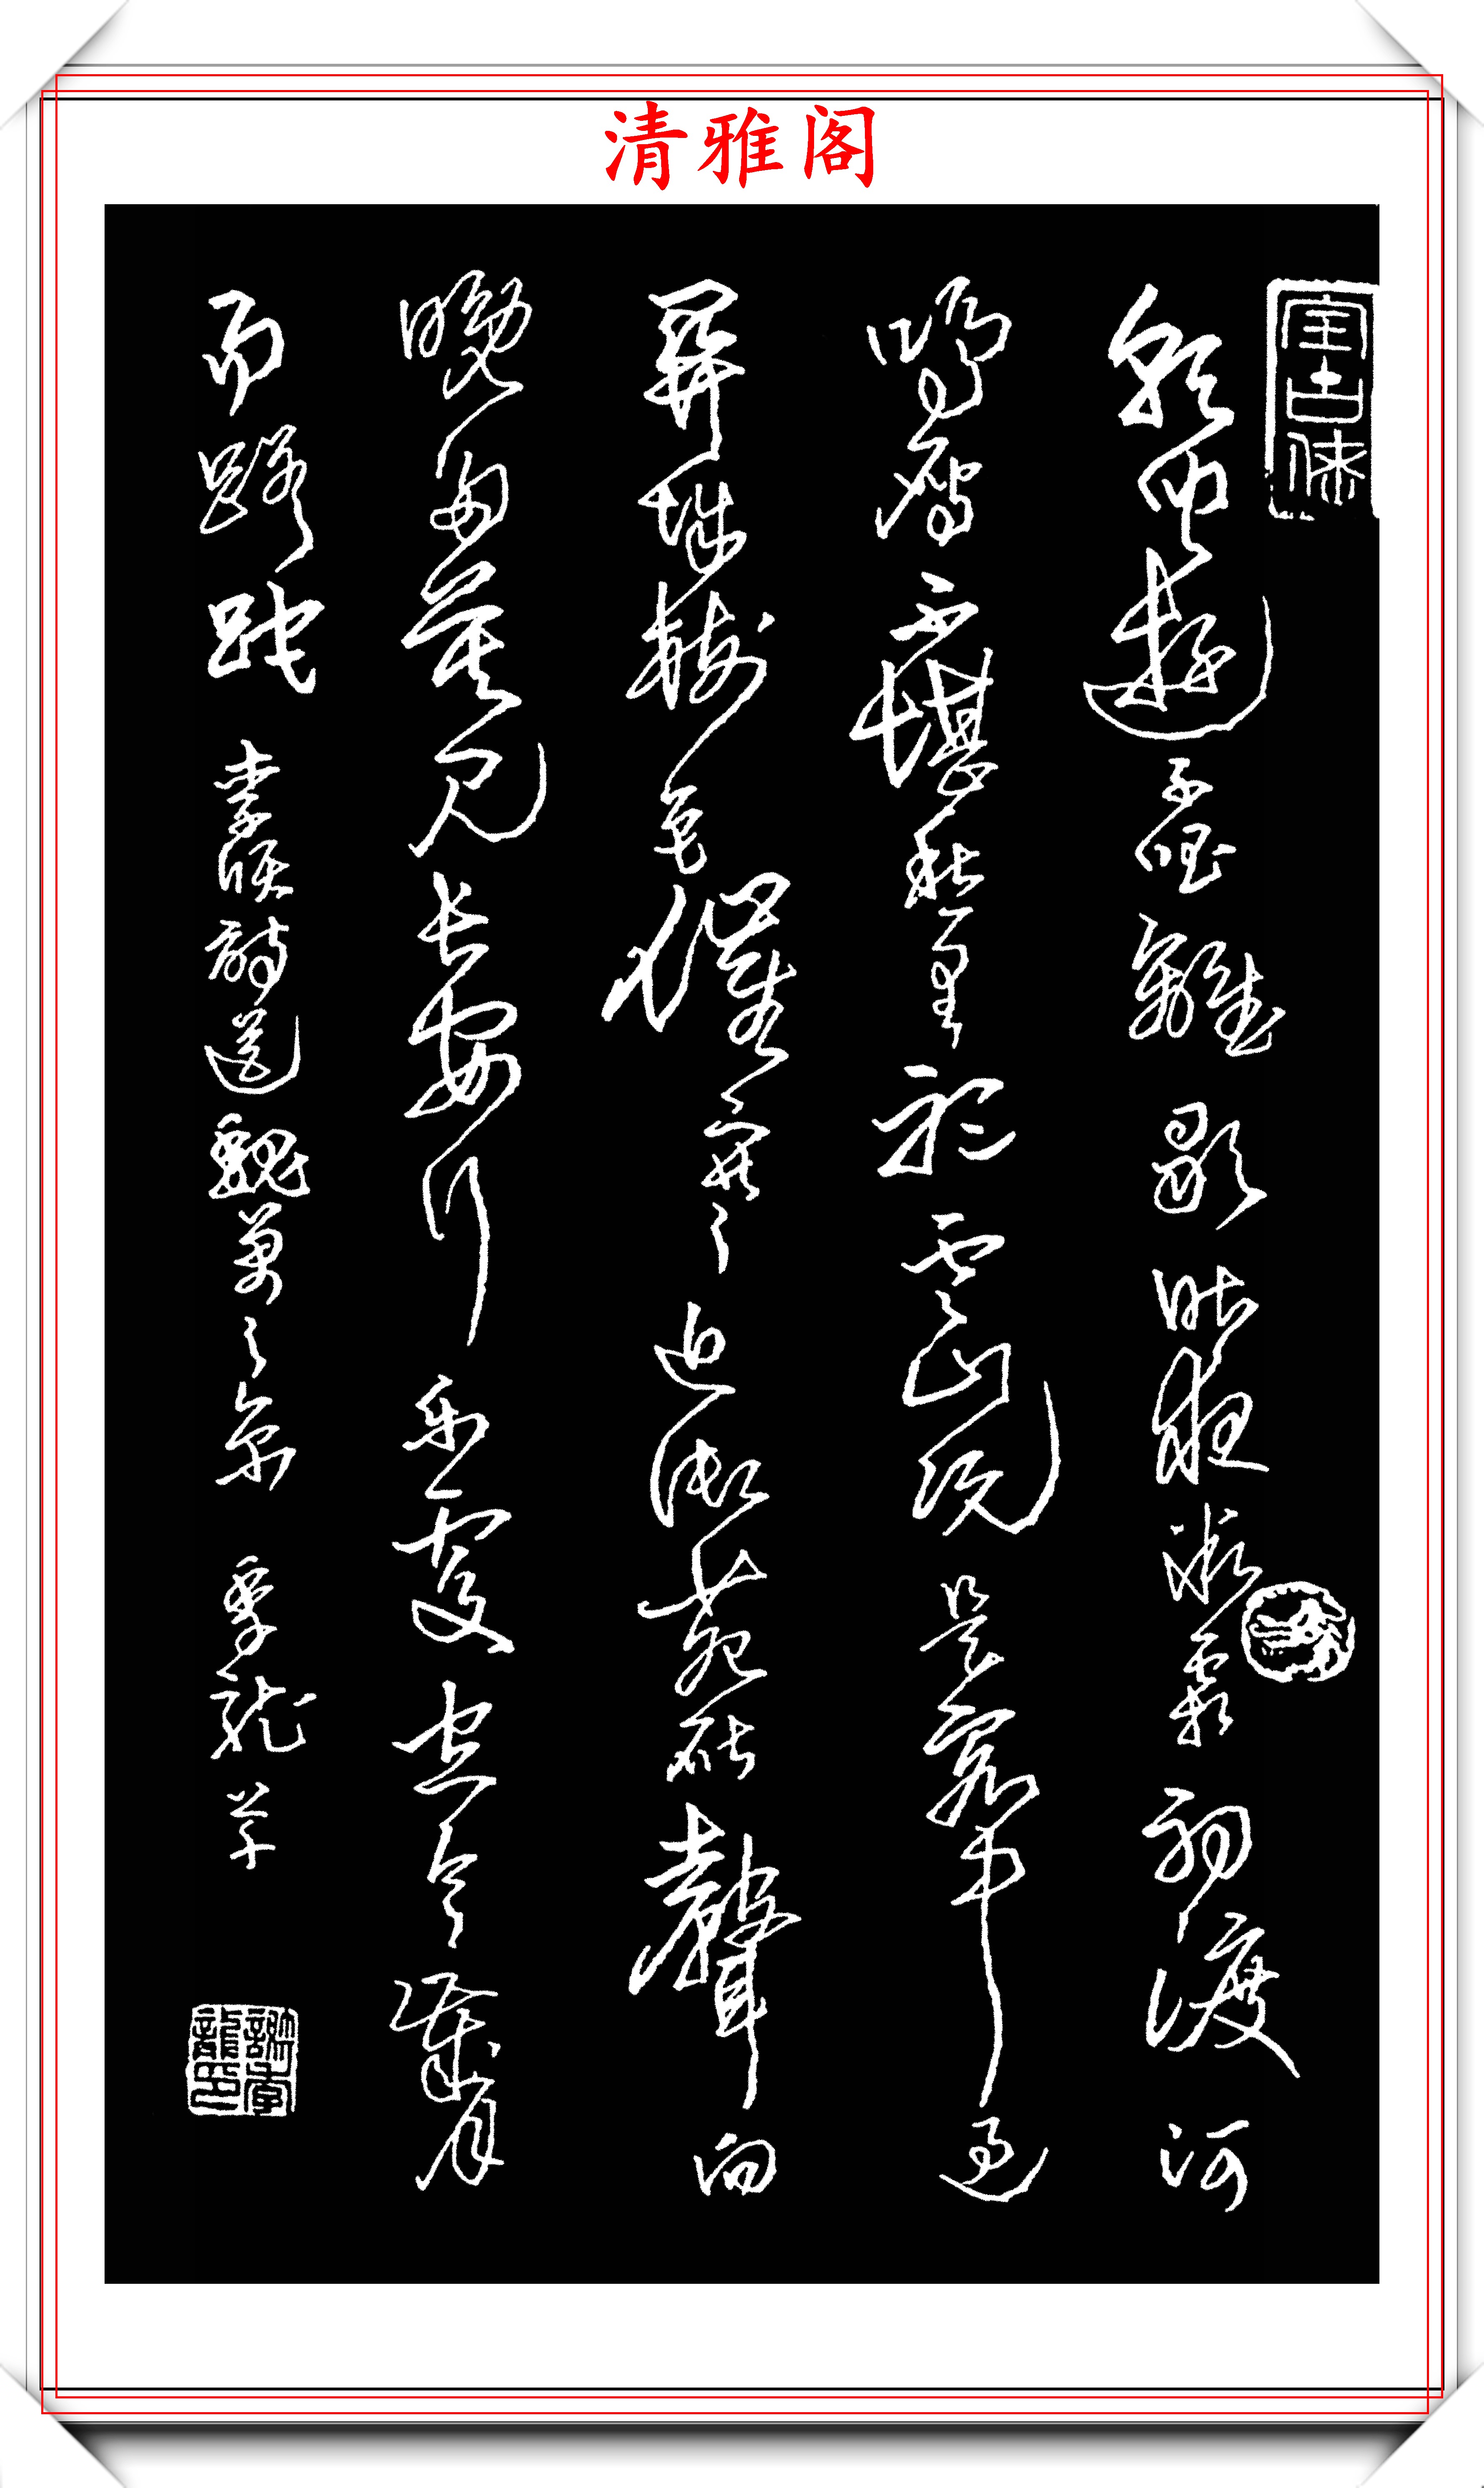 清雅阁
朝聞遊子唱離歌昨夜微霜初渡河
鴻雁不堪愁裏聽雲山况是客中過
關城樹色催寒近御苑砧聲向
晚多莫見長安行樂處空令歲月
易蹉跎 李頎詩送魏萬之京 季龍草